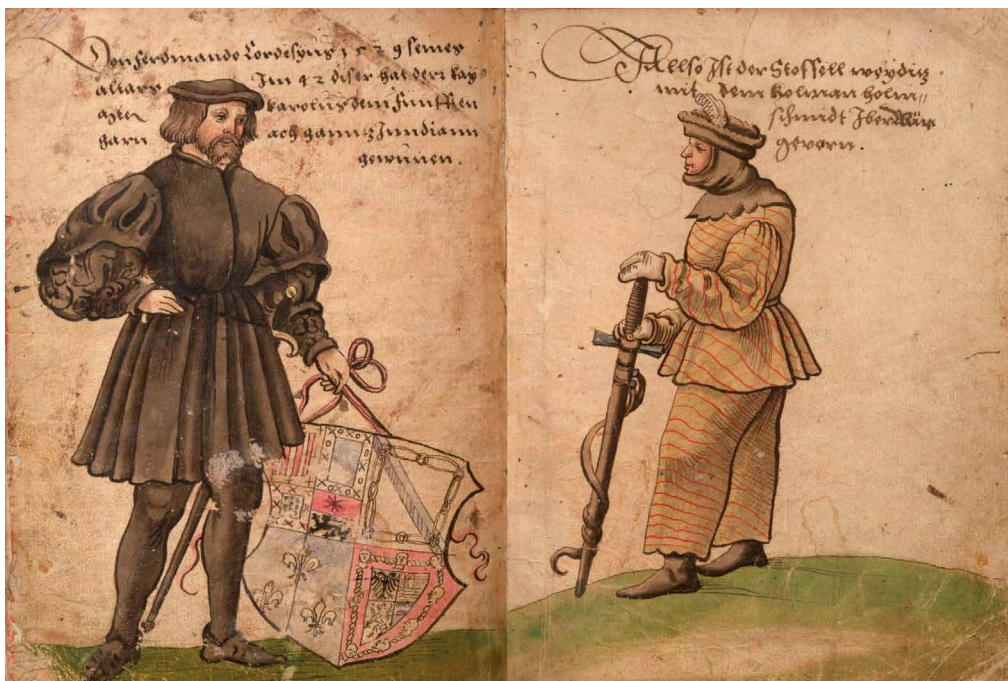 Don ferdinando Cordesyus 1529 seines
alters Im 42 diser hat der kay
karolus dem funfften
ach ganntz Inndiann
gewunen.
Allso Ist der Stoffell weydiz
mit dem kolman holm
schmidt Iber Mär
gevarn.